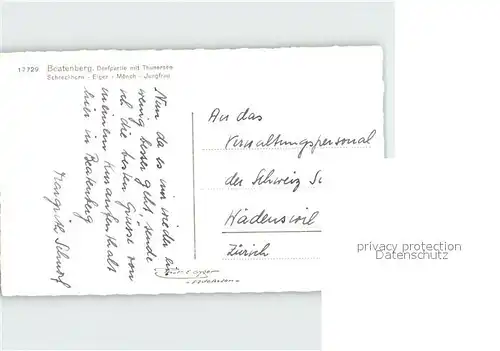 17729 Beatenberg. Dorfpartie mit Thunersee
Schreckhorn - Eiger - Mönch - Jungfrau
Nun da es mir wieder ein
wenig besser geht, sende
ich die besten Grüsse von
meinem Kuraufenthalt
hier in Beatenberg
Margrith
An das
Verwaltungspersonal
der Schweiz
Wädenswil
Zürich
privacy protection
Datenschutz